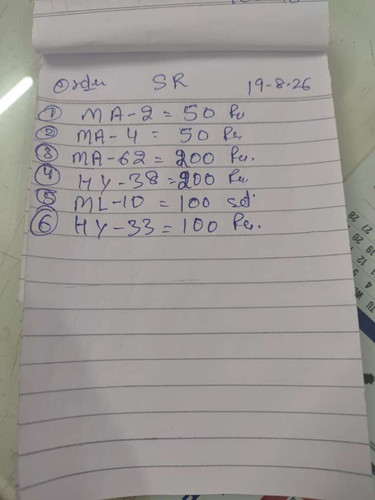 Order SR 19-8-26
① MA-2 = 50 Pcs
② MA-4 = 50 Pcs
③ MA-62 = 200 Pcs.
④ HY-38 = 200 Pcs
⑤ ML-10 = 100 set
⑥ HY-33 = 100 Pcs.